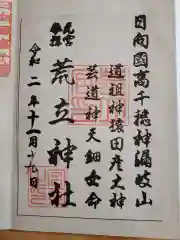 日向國高千穂神漏岐山
道祖神猿田彦大神
芸道神天鈿女命
荒立神社
令和二年十一月十九日